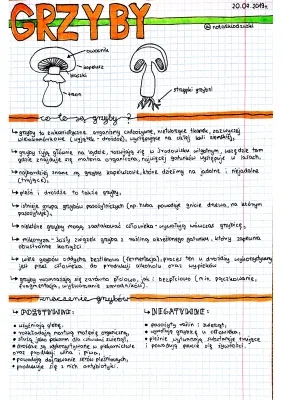 GRZYBY
20.04.2019r.
owocnia
kapelusz
blaszki
trzon
strzępki grzybni
co to są grzyby?
↳ grzyby to eukariotyczne organizmy cudzożywne, nietworzące tkanek, zazwyczaj
wielokomórkowe (wyjątek - drożdże), występujące na całej kuli ziemskiej,
↳ grzyby żyją głównie na lądzie, rozwijają się w środowisku wilgotnym, wszędzie tam
gdzie znajduje się materia organiczna, najwięcej gatunków występuje w lasach,
↳ najbardziej znane są grzyby kapeluszowe, które dzielimy na jadalne i niejadalne
(trujące),
↳ pleśń i drożdże to także grzyby,
↳ istnieje grupa grzybów pasożytniczych (np. huba powoduje gnicie drewna, na którym
pasożytuje),
↳ niektóre grzyby mogą zaatakować człowieka - wywołują wówczas grzybicę,
↳ mikoryza - ścisły związek grzyba z rośliną określonego gatunku, który zapewnia
obustronne korzyści
↳ wiele grzybów oddycha beztlenowo (fermentacja), proces ten u drożdży wykorzystywany
jest przez człowieka do produkcji alkoholu oraz wypieków
↳ grzyby rozmnażają się zarówno płciowo, jak i bezpłciowo (m.in. pączkowanie,
fragmentacja, wytwarzanie zarodników)
znaczenie grzybów
↳ POZYTYWNE:
• użyźniają glebę,
• rozkładają martwą materię organiczną,
• służą jako pokarm dla człowieka i zwierząt,
• drożdże są wykorzystywane w piekarnictwie
oraz produkcji wina i piwa,
• powodują dojrzewanie serów pleśniowych,
• produkuje się z nich antybiotyki.
↳ NEGATYWNE:
• pasożyty roślin i zwierząt,
• wywołują grzybicę u człowieka,
• pleśnie wytwarzają substancje trujące
i powodują psucie się żywności.